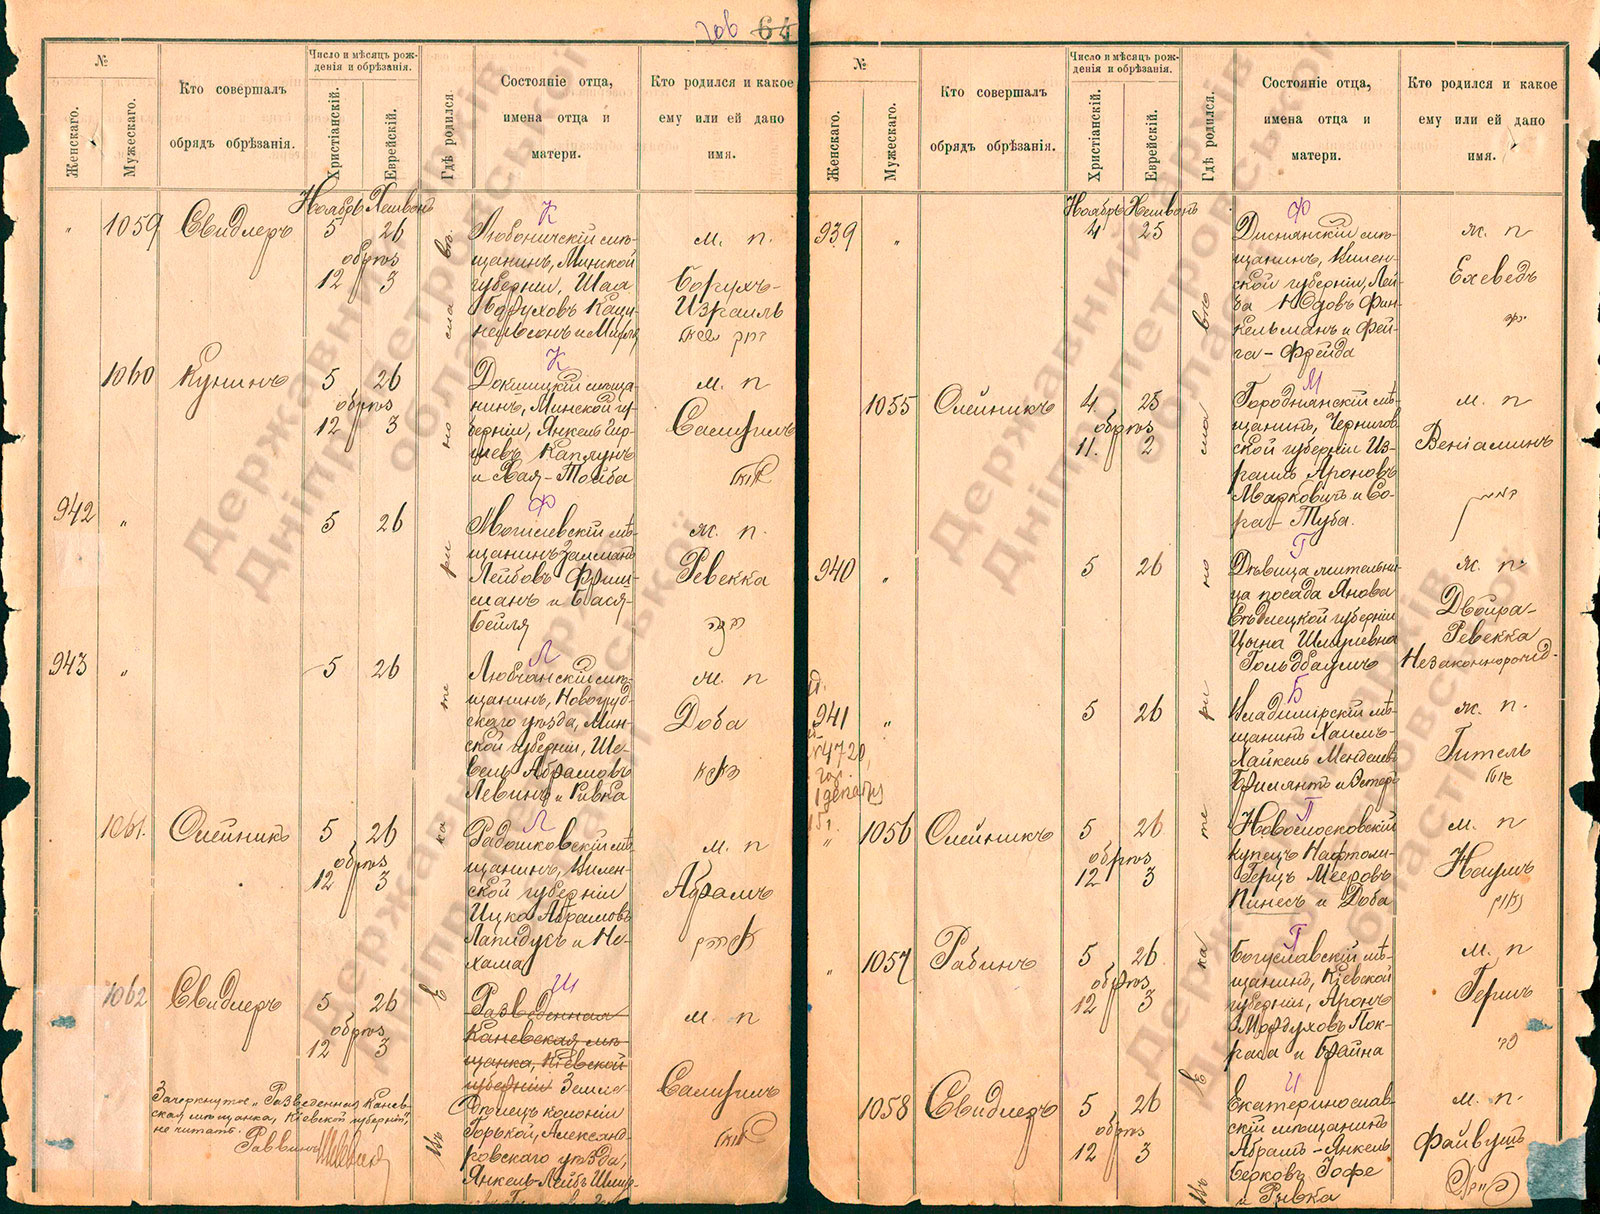 706 64
№
Женскаго.
Мужескаго.
Кто совершалъ
обрядъ обрѣзанія.
Число и мѣсяцъ рож-
денія и обрѣзанія.
Христіанскій.
Еврейскій.
Гдѣ родился.
Состояніе отца,
имена отца и
матери.
Кто родился и какое
ему или ей дано
имя.
Ноябрь Хешвонъ
" 1059 Свидлеръ 5 26
обрѣз
12 3
К
Любоничскій мѣ-
щанинъ, Минской
губерніи, Шая
Борухов Каце-
нельсонъ и Мирля
м. п.
Борухъ-
Израиль
1060 Кунинъ 5 26
обрѣз
12 3
К
Докшицкій мѣща-
нинъ, Минской гу-
берніи, Янкель Гир-
шевъ Каплунъ
и Хая-Тойба
м. п
Самуилъ
942 " 5 26
Ф
Могилевскій мѣ-
щанинъ Залманъ
Лейбовъ Фриш-
манъ и Бася-
Бейля
ж. п.
Ревекка
943 " 5 26
Л
Любчанскій мѣ-
щанинъ, Новогруд-
скаго уѣзда, Мин-
ской губерніи, Ше-
вель Абрамовъ
Левинъ и Ривка
ж. п
Доба
1061. Олейникъ 5 26
обрѣз
12 3
Л
Радошковскій мѣ-
щанинъ, Вилен-
ской губерніи
Ицка Абрамовъ
Лапидусъ и Не-
хама
м. п
Абрамъ
1062 Свидлеръ 5 26
обрѣз
12 3
Ш
Разведенная
Каневская мѣ-
щанка, Кіевской
губерніи Земле-
дѣлецъ колоніи
Горькой, Александ-
ровскаго уѣзда,
Янкель-Лейбъ Шлио-
м. п
Самуилъ
Зачеркнутое „Разведенная Канев-
ская мѣщанка, Кіевской губерніи",
не читать.
Раввинъ
Въ Екатеринославѣ
№
Женскаго.
Мужескаго.
Кто совершалъ
обрядъ обрѣзанія.
Число и мѣсяцъ рож-
денія и обрѣзанія.
Христіанскій.
Еврейскій.
Гдѣ родился.
Состояніе отца,
имена отца и
матери.
Кто родился и какое
ему или ей дано
имя.
Ноябрь Хешвонъ
939 " 4 25
Ф
Диснянскій мѣ-
щанинъ, Вилен-
ской губерніи, Лей-
ба Юдовъ Фин-
кельманъ и Фей-
га-Фрейда
ж. п
Ехеведъ
1055 Олейникъ 4 25
обрѣз
11. 2
М
Городнянскій мѣ-
щанинъ, Чернигов-
ской губерніи Из-
раиль Ароновъ
Марковичъ и Со-
ра-Туба.
м. п
Веніаминъ
940 " 5 26
Г
Дѣвица жительни-
ца посада Янова
Сѣдлецкой губерніи
Цына Шмулевна
Гольдбаумъ
ж. п
Двойра-
Ревекка
Незаконнорожд.
941 " 5 26
Б
Владимірскій мѣ-
щанинъ Хаимъ-
Хайкель Менделевъ
Бриллянтъ и Эстеръ
ж. п.
Гитель
№4720,
1 декабр
" 1056 Олейникъ 5 26
обрѣз
12 3
П
Новомосковскій
купецъ Нафтоли-
Герцъ Мееровъ
Пинесъ и Доба
м. п
Наумъ
" 1057 Рабинъ 5 26
обрѣз
12 3
П
Богуславскій мѣ-
щанинъ, Кіевской
губерніи, Аронъ
Мордуховъ Пок-
раса и Брайна
м. п
Гершъ
1058 Свидлеръ 5 26
обрѣз
12 3
И
Екатеринослав-
скій мѣщанинъ
Абрамъ-Янкель
Берковъ Іофе
и Рывка
м. п.
Файвушъ
Въ Екатеринославѣ
Державний архів
Дніпропетровської
області